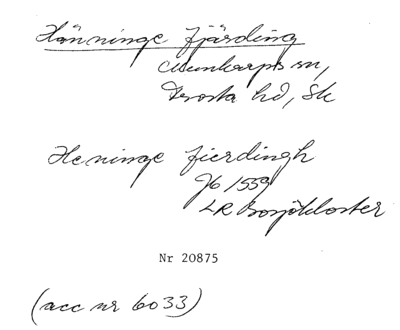 Hänninge fjärding
Munkarps sn,
Frosta hd, Sk
Heninge fierdingh
Jb 1559
LR Bosjökloster
Nr 20875
(acc nr 6033)